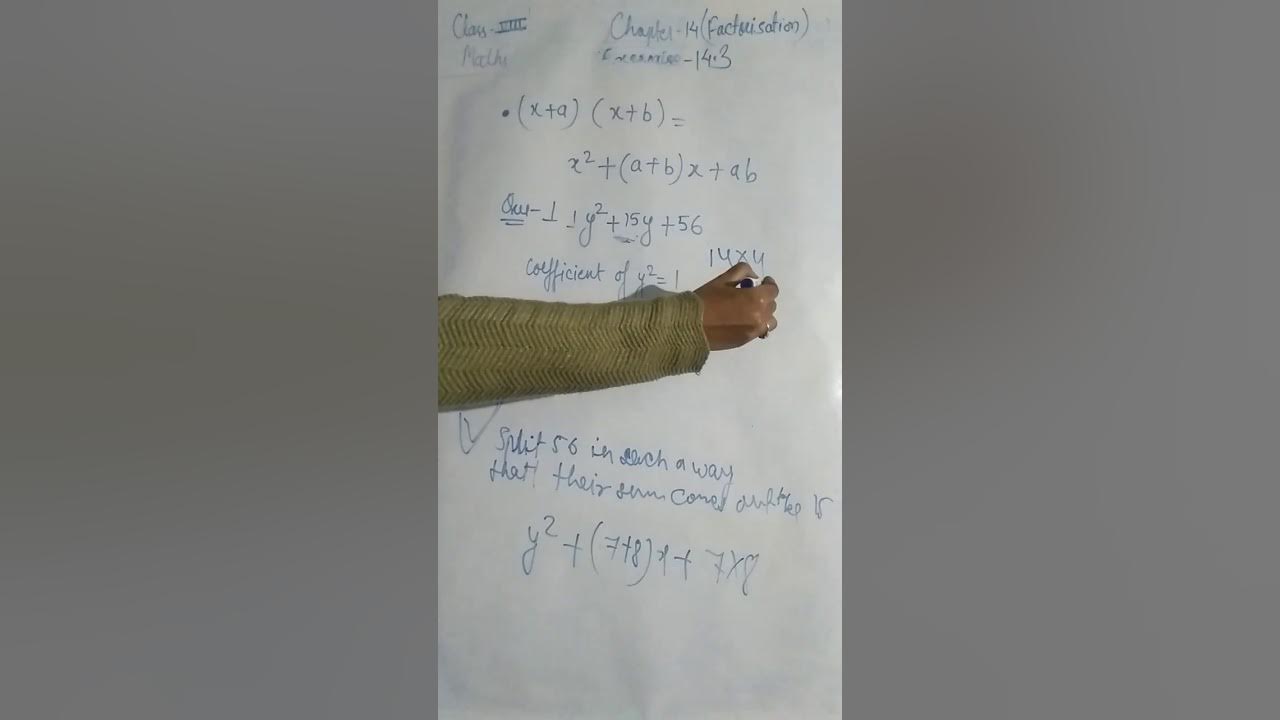 Class-VIII Chapter-14(Factorisation)
Maths Exercise-14.3
•(x+a) (x+b)=
x²+(a+b)x+ab
Que-1 1y²+15y+56
14×4
coefficient of y²=1
Split 56 in such a way
that their sum comes out to be 15
y²+(7+8)x+ 7×8